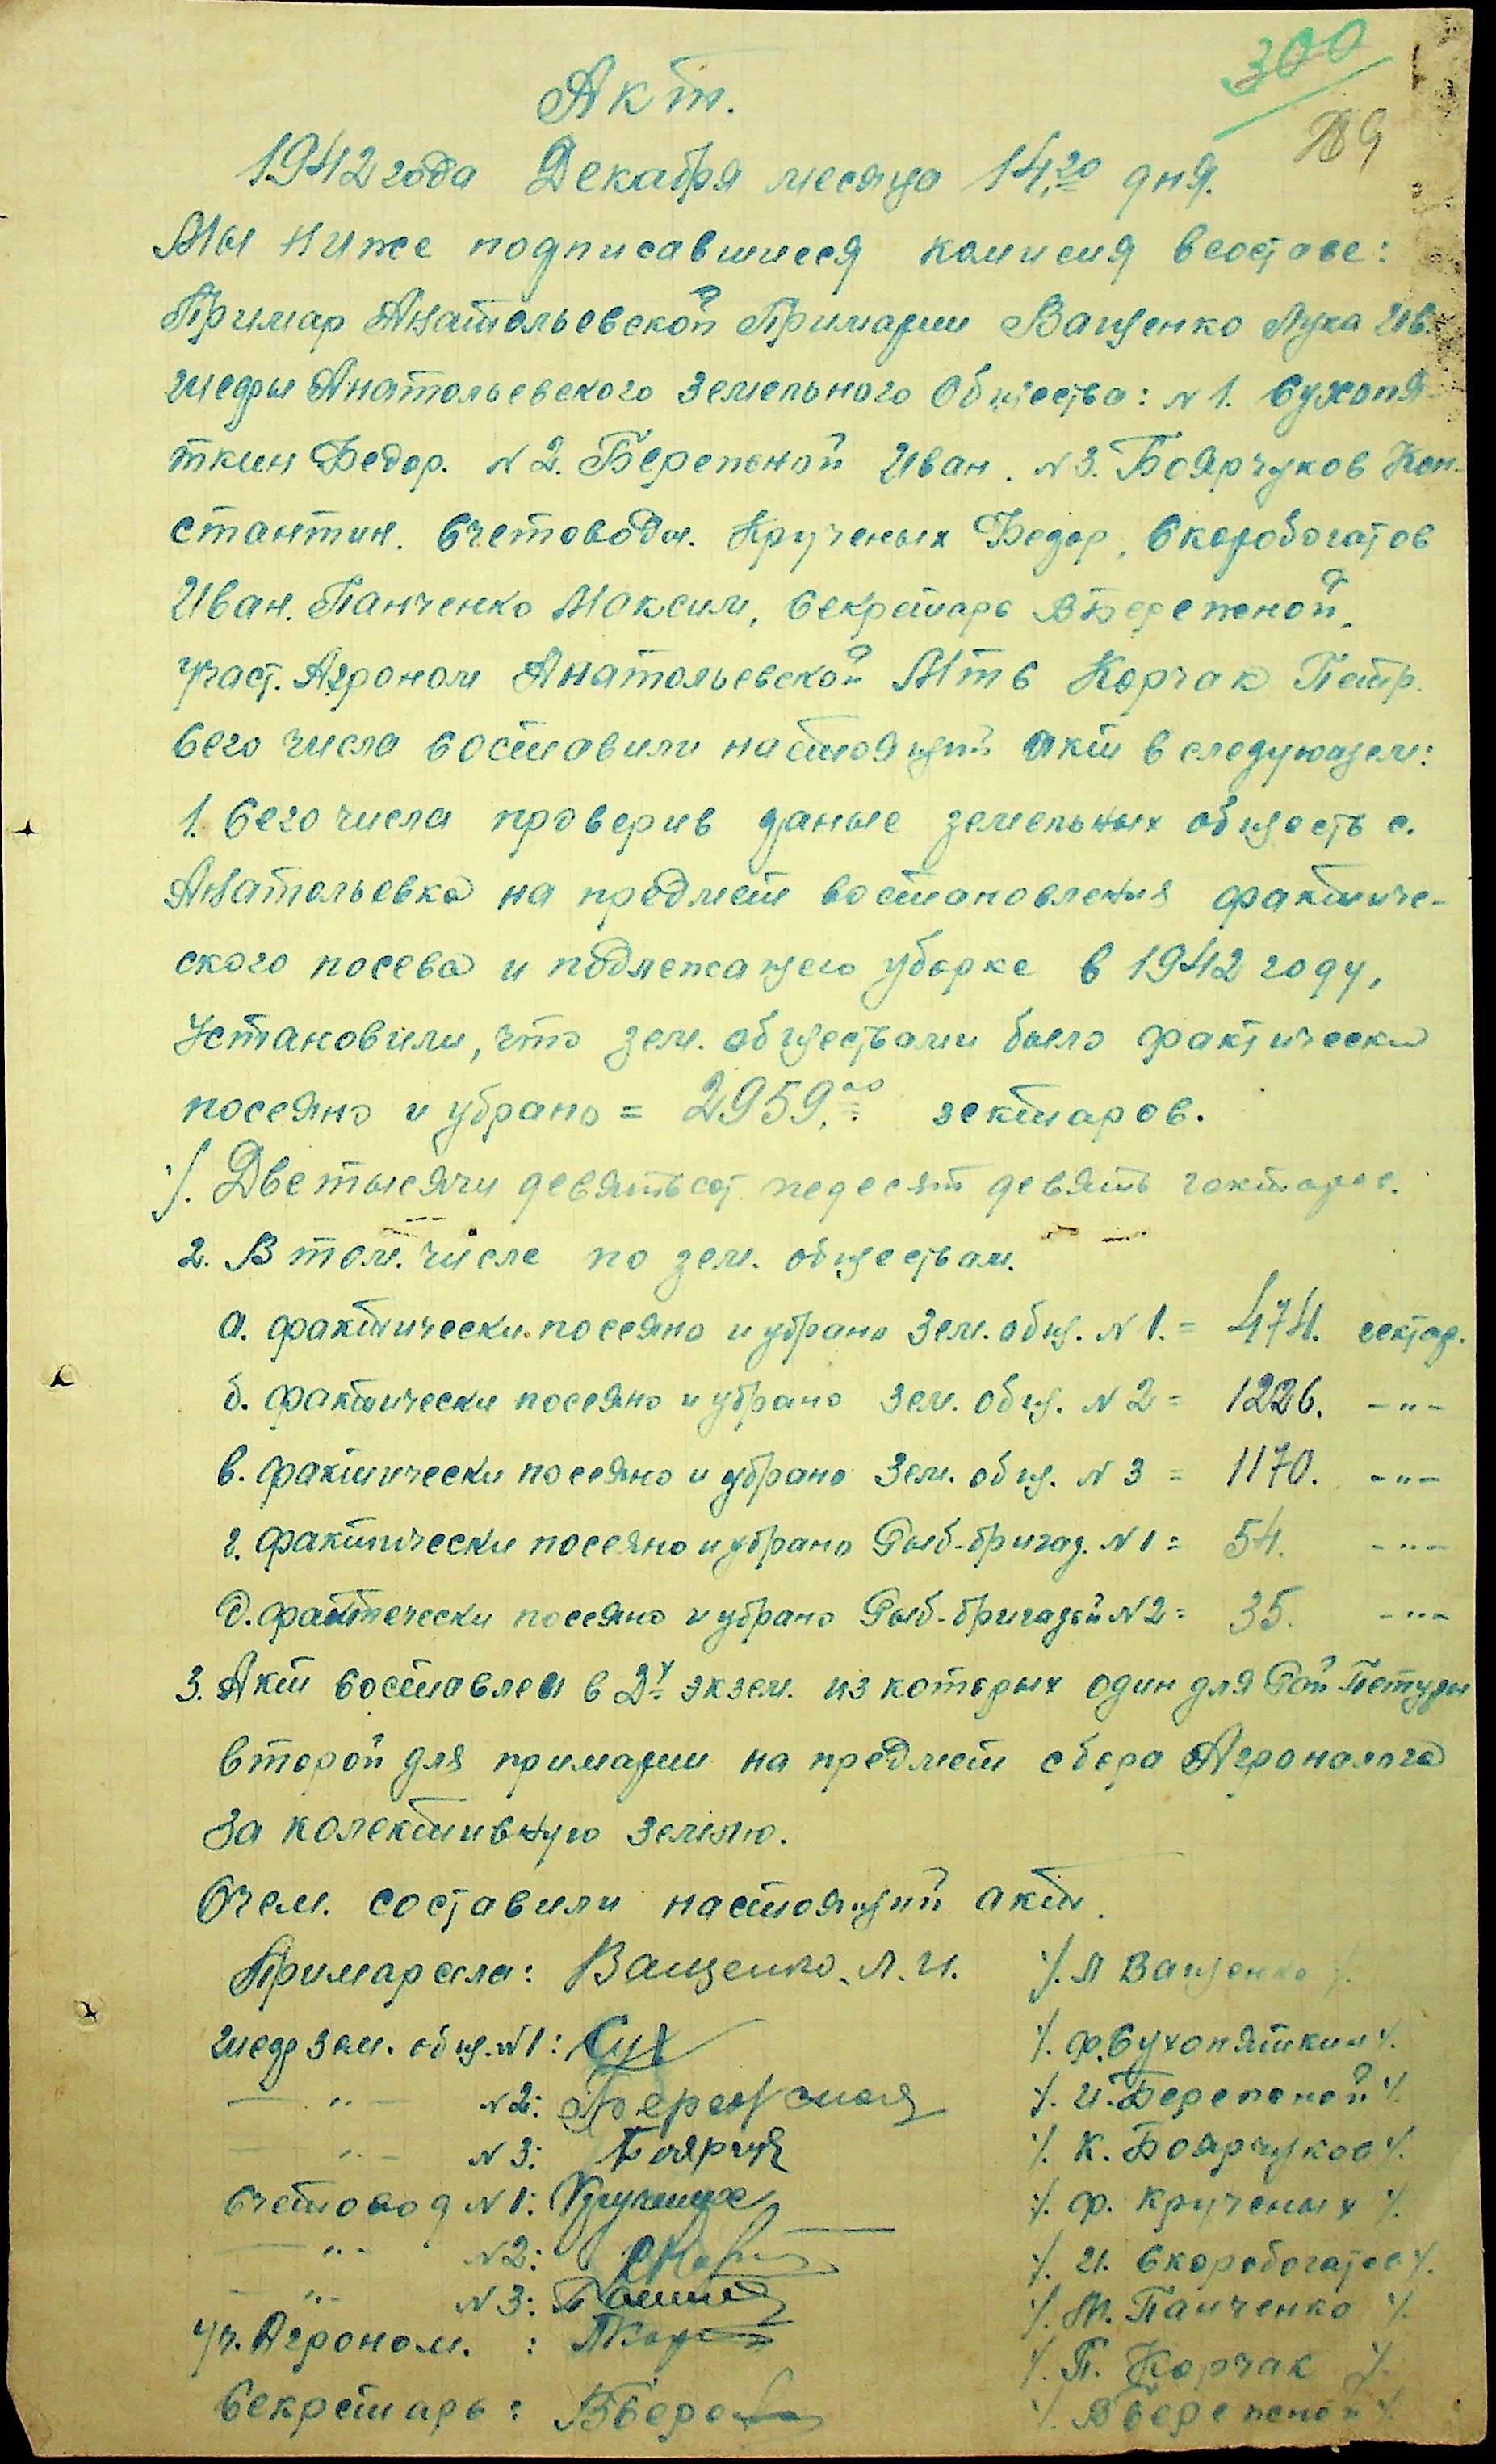 300
Акт.
89
1942 года Декабря месяца 14,го дня.
Мы ниже подписавшиеся комисия всоставе:
Примар Анатольевской Примарии Ващенко Лука Ив.
шефы Анатольевского Земельного Общества: N 1. Сухопя-
ткин Федор. N 2. Береженой Иван. N 3. Боярчуков Кон-
стантин. Счетоводы. Крученых Федор, Скоробогатов
Иван. Панченко Максим, Секретарь В Береженой,
Участ. Агроном Анатольевской МТС Корчак Петр.
Сего числа составили настоящий акт в следующем:
1. Сего числа проверив даные земельных обществ с.
Анатольевка на предмет востановления фактиче-
ского посева и подлежащего уборке в 1942 году,
Установили, что зем. обществами было фактически
посеяно и убрано = 2959,00 гектаров.
/. Две тысячи девятьсот педесят девять гектаров.
2. В том. числе по зем. обществам.
а. фактически посеяно и убрано Зем. общ. N 1. = 474. гектар.
б. фактически посеяно и убрано Зем. общ. N 2 = 1226. -"-
в. фактически посеяно и убрано Зем. общ. N 3 = 1170. -"-
г. фактически посеяно и убрано Рыб-бригад. N 1 = 54. -"-
д. фактечески посеяно и убрано Рыб-бригадой N 2 = 35. -"-
3. Акт составлен в 2х экзем. из которых один для Рай Петуры
второй для примарии на предмет сбора Агроналога
За колективную землю.
Очем. составили настоящий акт.
Примар села: Ващенко. Л. И. /. Л Ващенко /.
Шеф зем. общ. N 1: Сух /. Ф. Сухопяткин /.
-"- N 2: Береженой /. И. Береженой /.
-"- N 3: Боярчук /. К. Боярчуков /.
Счетовод N 1: Крученых /. Ф. Крученых /.
-"- N 2: /. И. Скоробогатов /.
-"- N 3: /. М. Панченко /.
Уч. Агроном. : ПКор /. П. Корчак /.
Секретарь: ВБере /. В Береженой /.